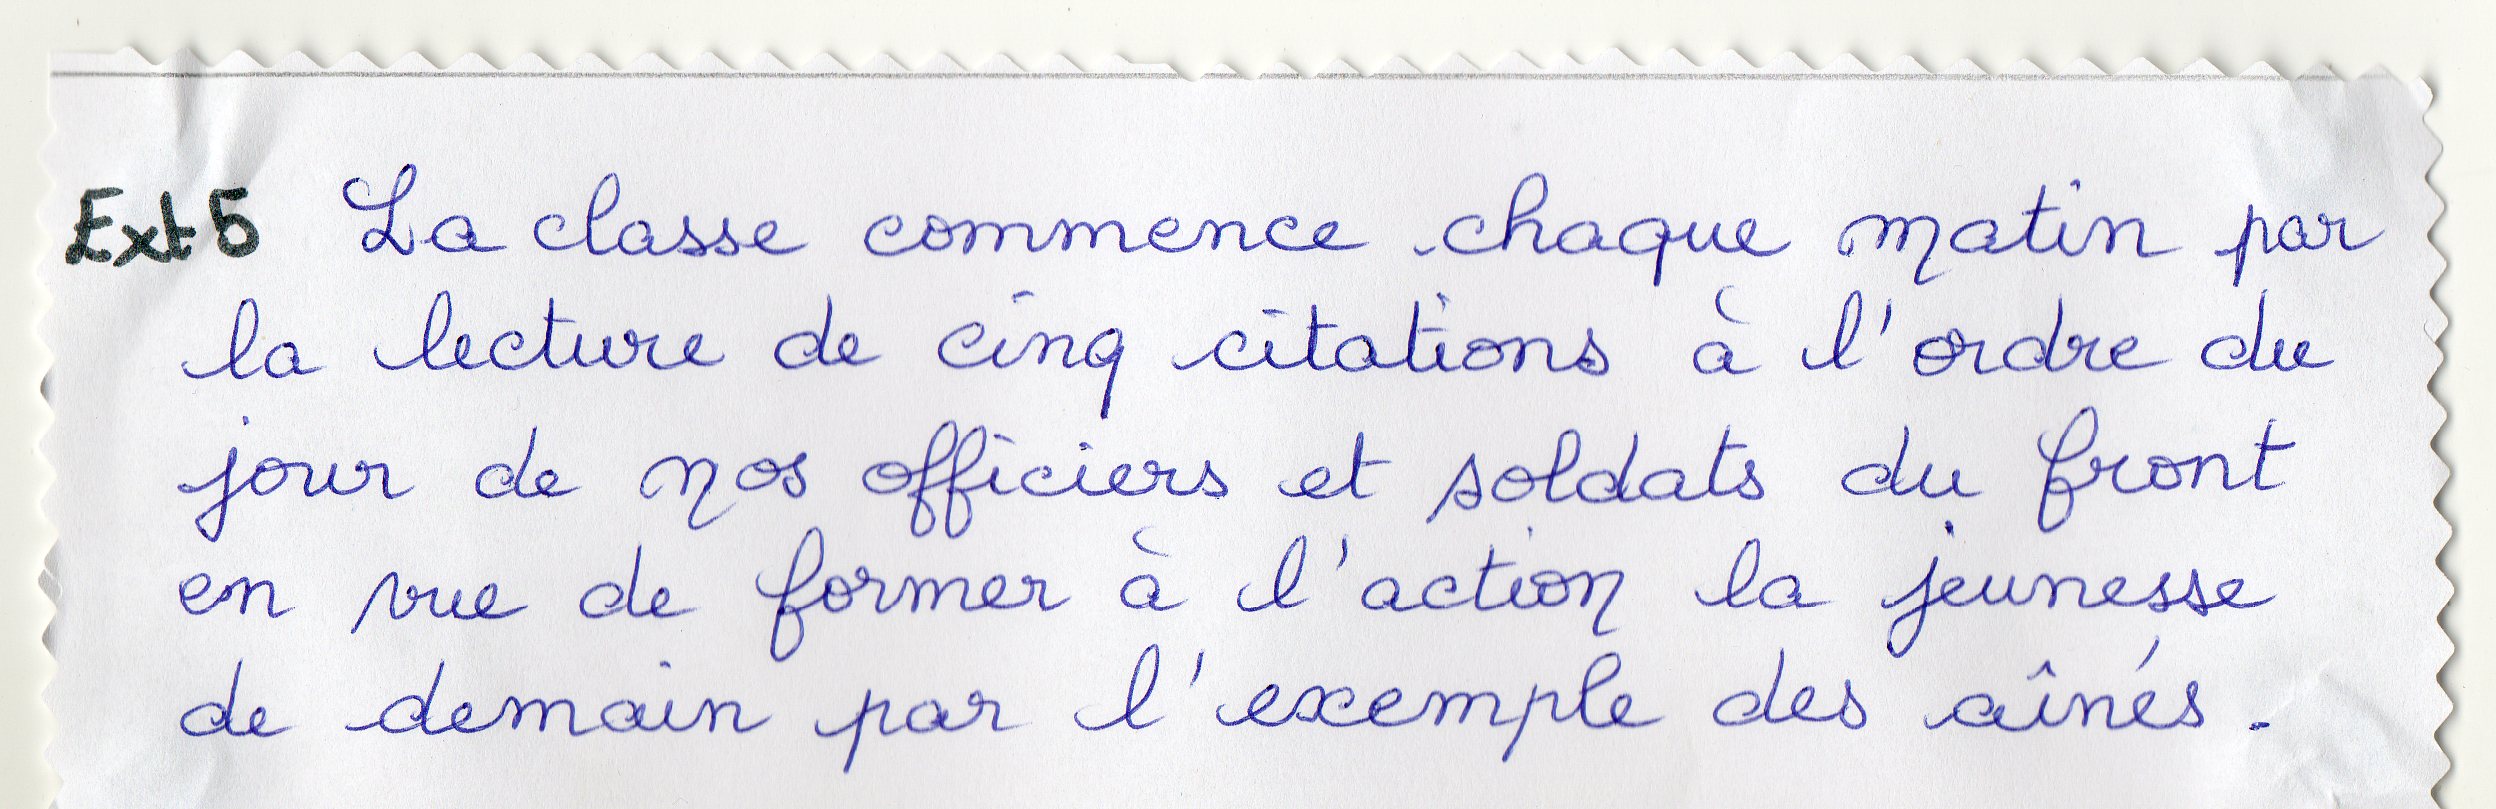 Ext 5 La classe commence chaque matin par
la lecture de cinq citations à l'ordre du
jour de nos officiers et soldats du front
en vue de former à l'action la jeunesse
de demain par l'exemple des aînés.